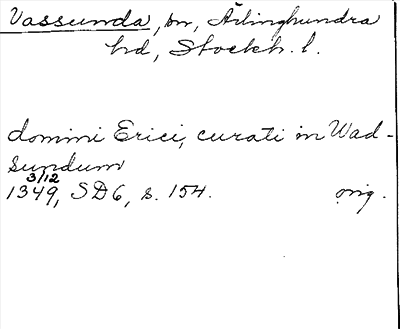 Vassunda, sn, Ärlinghundra
hd, Stockh. l.
domini Erici, curati in Wad-
sundum
3/12
1349, SD6, s. 154. orig.